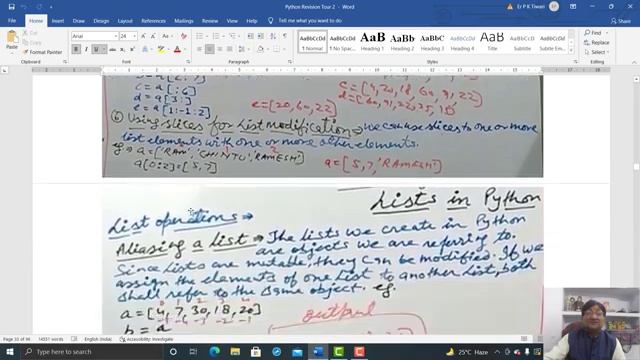 Python Revision Tour 2 - Word
Er P K Tiwari
File Home Insert Design Layout References Mailings Review View Help Tell me what you want to do
Share
Cut
Copy
Format Painter
Clipboard
Font
Paragraph
Styles
Editing
AaBbCcDd AaBbCcDd AaBbC AaBbCcC AaB AaBbCcD AaBbCcDd
1 Normal 1 No Spac... Heading 1 Heading 2 Title Subtitle Subtle Em...
Find
Replace
Select
c = a[:6]
d = a[3:]
e = a[1:-1:2]
e=[20,60,22]
⑥ Using slices for List modification → We can use slices to one or more
list elements with one or more other elements.
eg → a = ['RAM', 'CHINTU', 'RAMESH']
a[0:2] = [5, 7]
a = [5, 7, 'RAMESH']
Lists in Python
List operations →
Aliasing a List → The lists we create in Python
are objects we are referring to.
Since lists are mutable, they can be modified. If we
assign the elements of one List to another List, both
shall refer to the same object. eg:
a = [4, 7, 30, 18, 20]
-5 -4 -3 -2 -1
b = a
output
Page 33 of 46 14331 words English (India) Accessibility: Investigate
Type here to search
25°C Haze